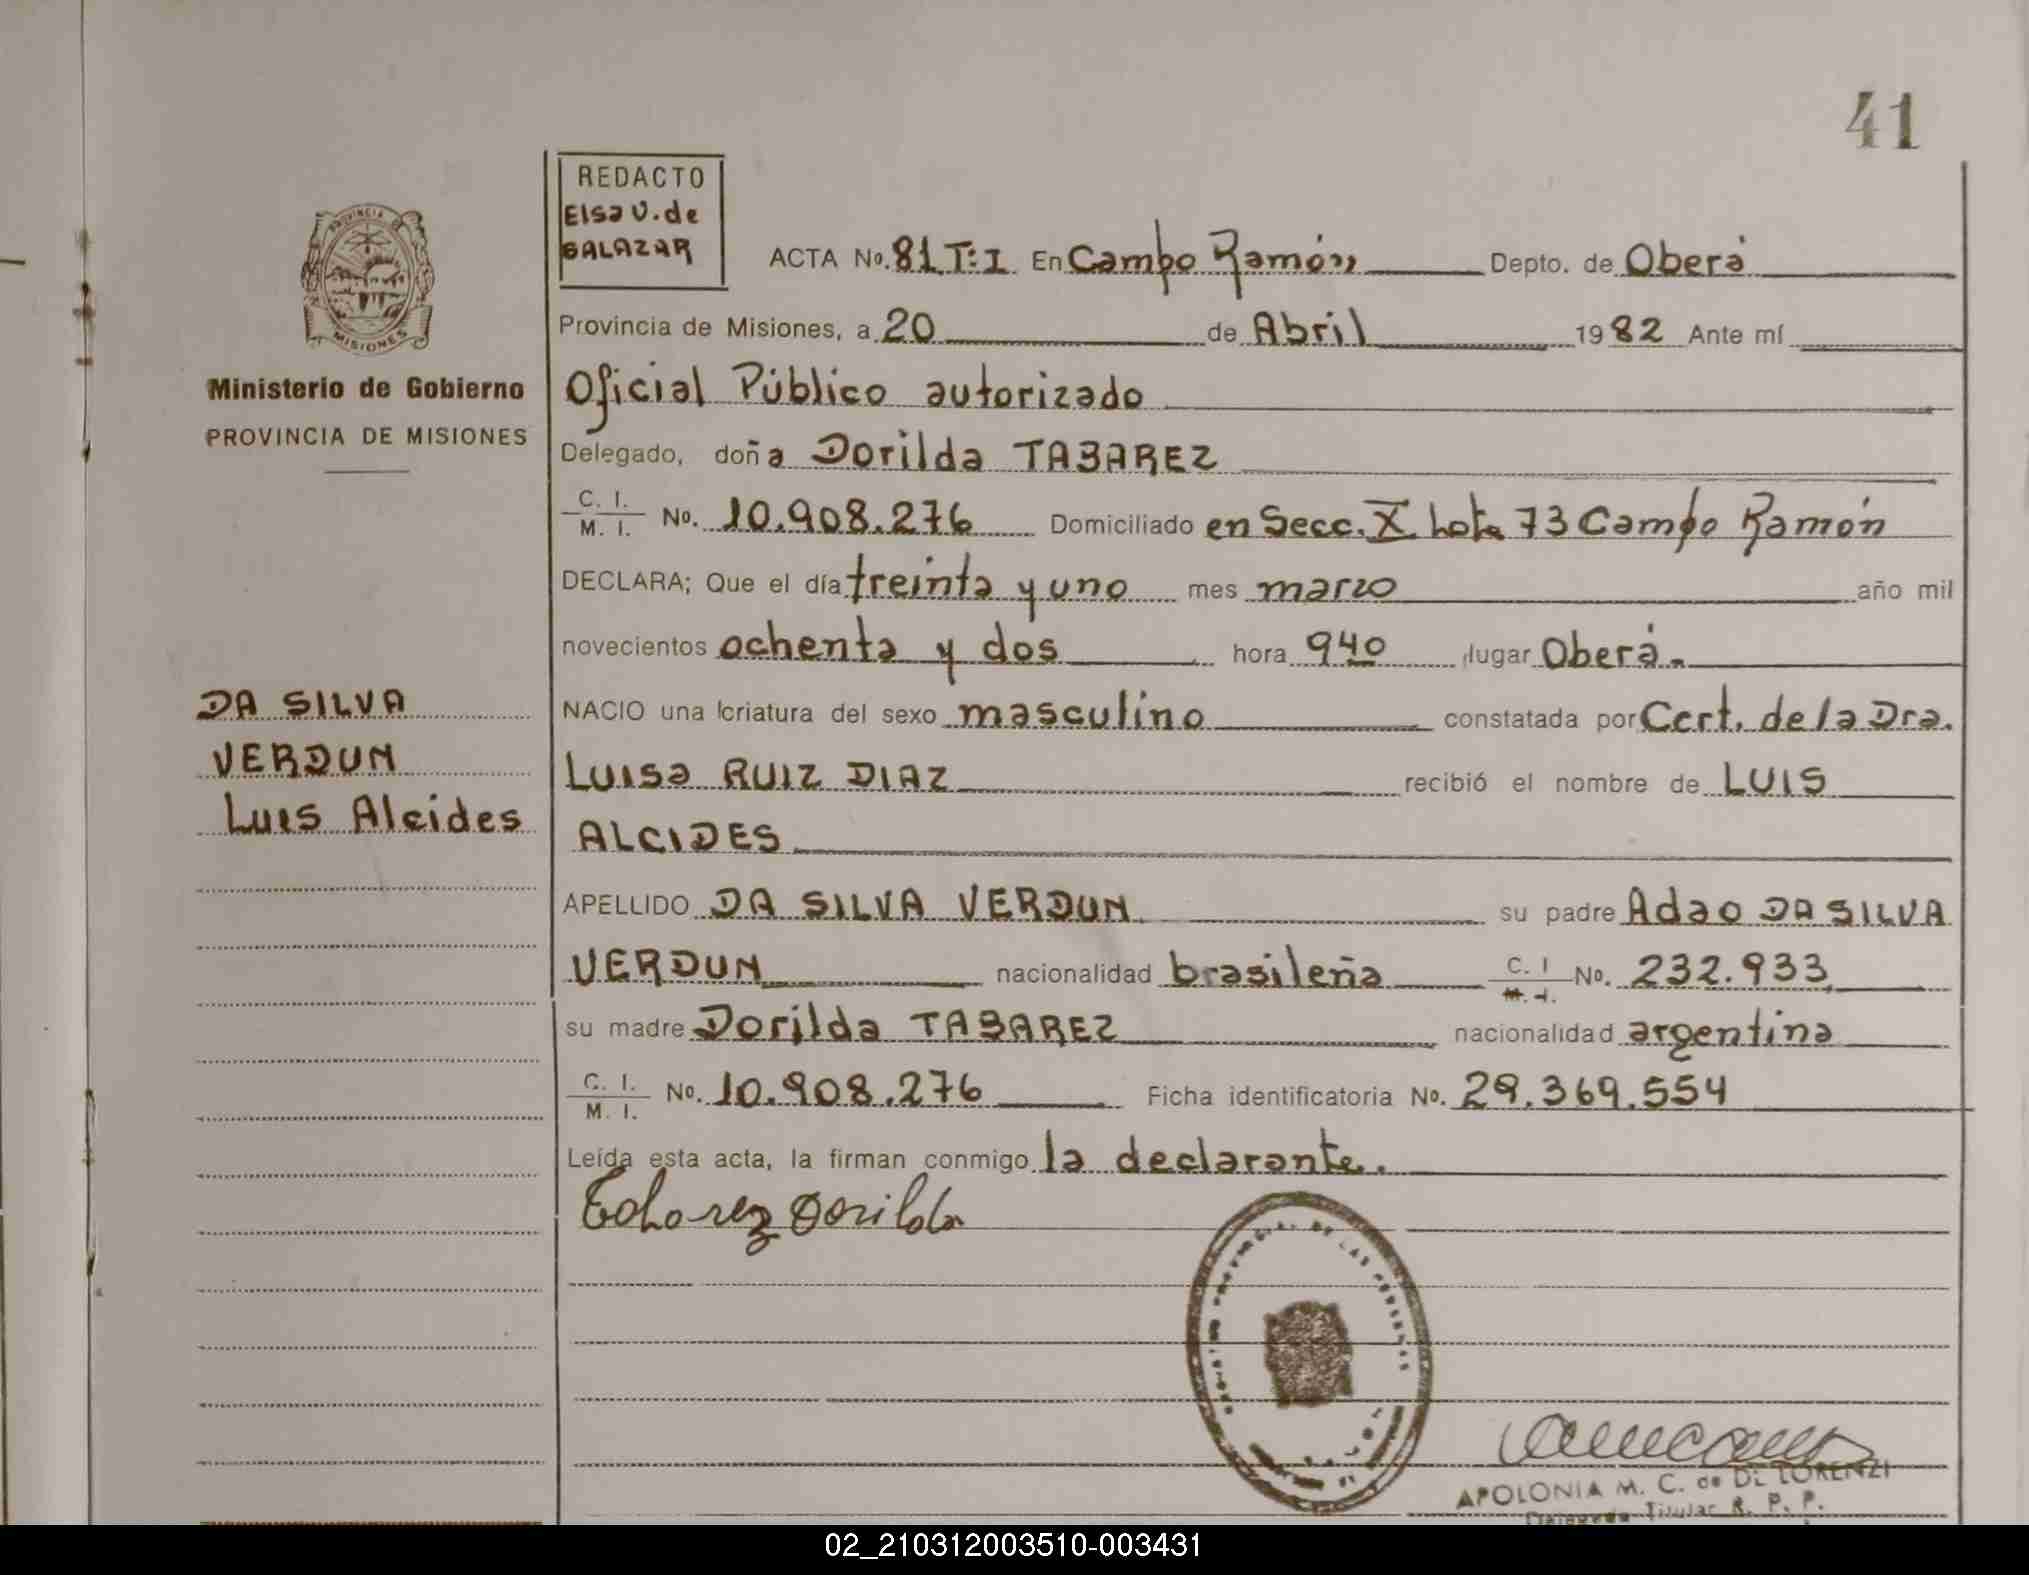 41
REDACTO
Elsa V. de
SALAZAR
PROVINCIA DE
MISIONES
Ministerio de Gobierno
PROVINCIA DE MISIONES
ACTA No. 81 T:I En Campo Ramón Depto. de Oberá
Provincia de Misiones, a 20 de Abril 1982 Ante mí
Oficial Público autorizado
Delegado, doña Dorilda TABAREZ
C. I.
M. I. No. 10.908.276 Domiciliado en Secc. X Lote 73 Campo Ramón
DECLARA; Que el día treinta y uno mes marzo año mil
novecientos ochenta y dos hora 940 lugar Oberá.
NACIO una criatura del sexo masculino constatada por Cert. de la Dra.
LUISA RUIZ DIAZ recibió el nombre de LUIS
ALCIDES
DA SILVA
VERDUN
Luis Alcides
APELLIDO DA SILVA VERDUN su padre Adao DA SILVA
VERDUN nacionalidad brasileña C. I No. 232.933
M. I.
su madre Dorilda TABAREZ nacionalidad argentina
C. I.
M. I. No. 10.908.276 Ficha identificatoria No. 29.369.554
Leída esta acta, la firman conmigo la declarante.
Tabarez Dorilda
DE LAS PERSONAS
APOLONIA M. C. de DE LORENZI
Delegada Titular R. P. P.
02_210312003510-003431